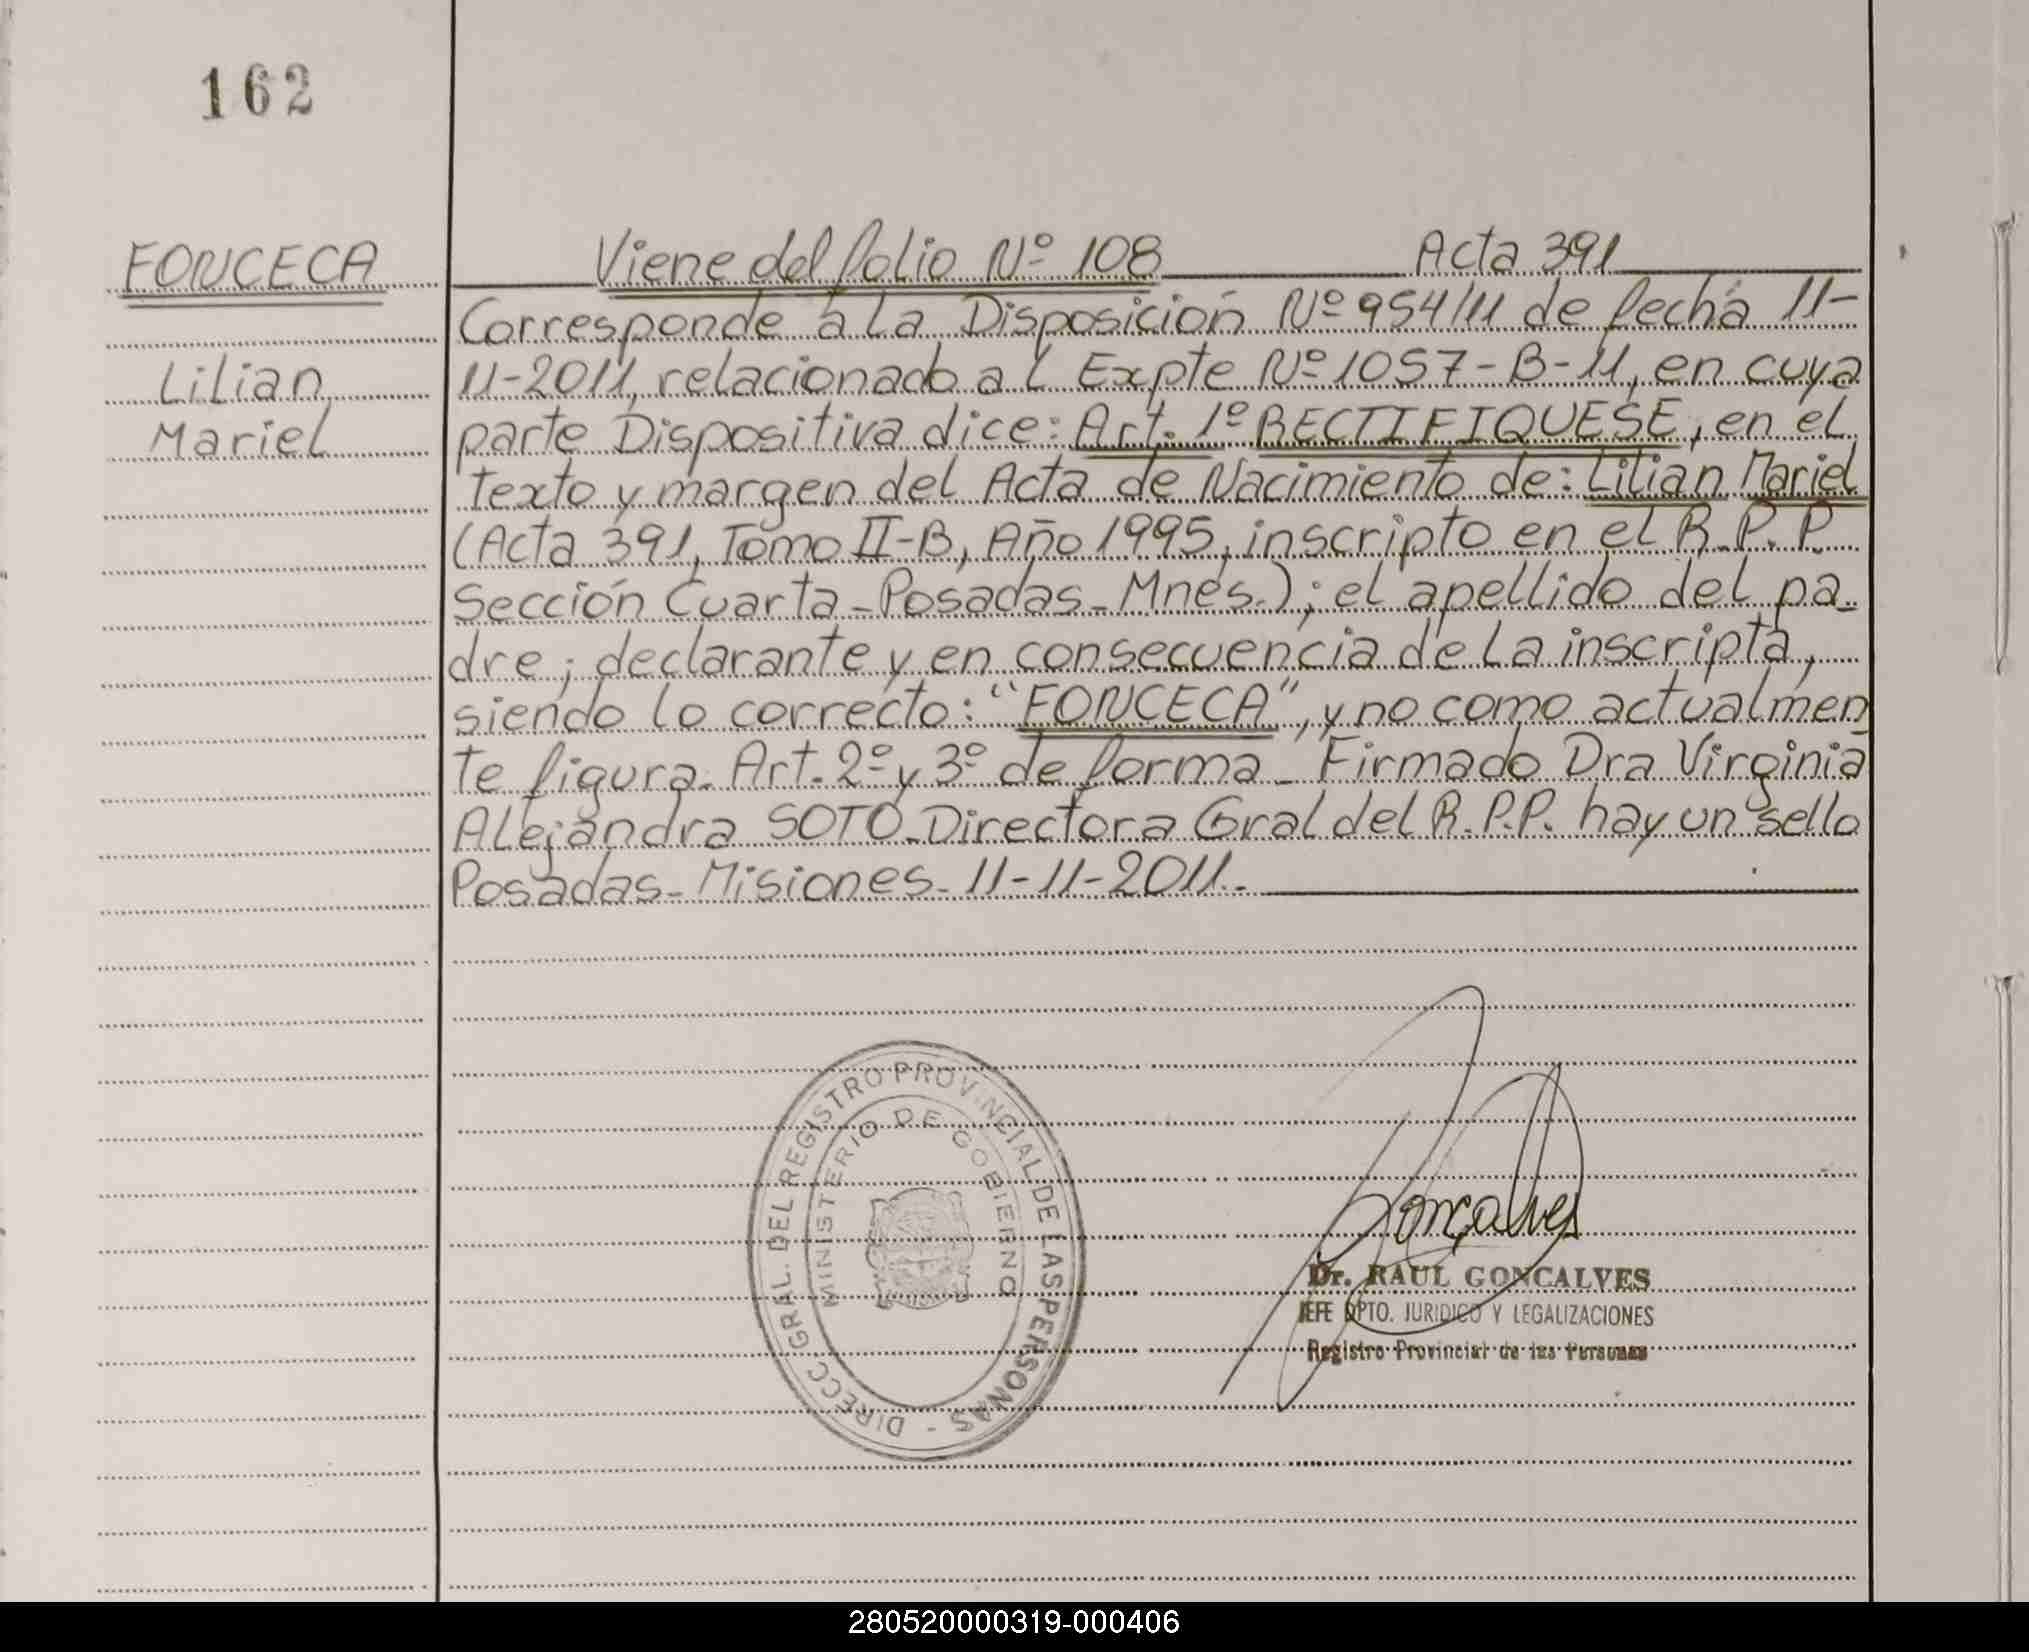 162
FONCECA
Lilian
Mariel
Viene del folio Nº 108 Acta 391
Corresponde a la Disposición Nº 954/11 de fecha 11-
11-2011, relacionado al Expte Nº 1057-B-11, en cuya
parte Dispositiva dice: Art. 1º RECTIFIQUESE, en el
texto y margen del Acta de Nacimiento de: Lilian Mariel
(Acta 391, Tomo II-B, Año 1995, inscripto en el R.P.P.
Sección Cuarta-Posadas-Mnes.); el apellido del pa-
dre; declarante y en consecuencia de la inscripta,
siendo lo correcto: "FONCECA", y no como actualmen
te figura. Art. 2º y 3º de forma - Firmado Dra Virginia
Alejandra SOTO-Directora Gral del R.P.P. hay un sello
Posadas-Misiones-11-11-2011.-
DIRECC GRAL. DEL REGISTRO PROVINCIAL DE LAS PERSONAS -
MINISTERIO DE GOBIERNO
Gonçalves
Dr. RAUL GONCALVES
JEFE DPTO. JURIDICO Y LEGALIZACIONES
Registro Provincial de las Personas
280520000319-000406